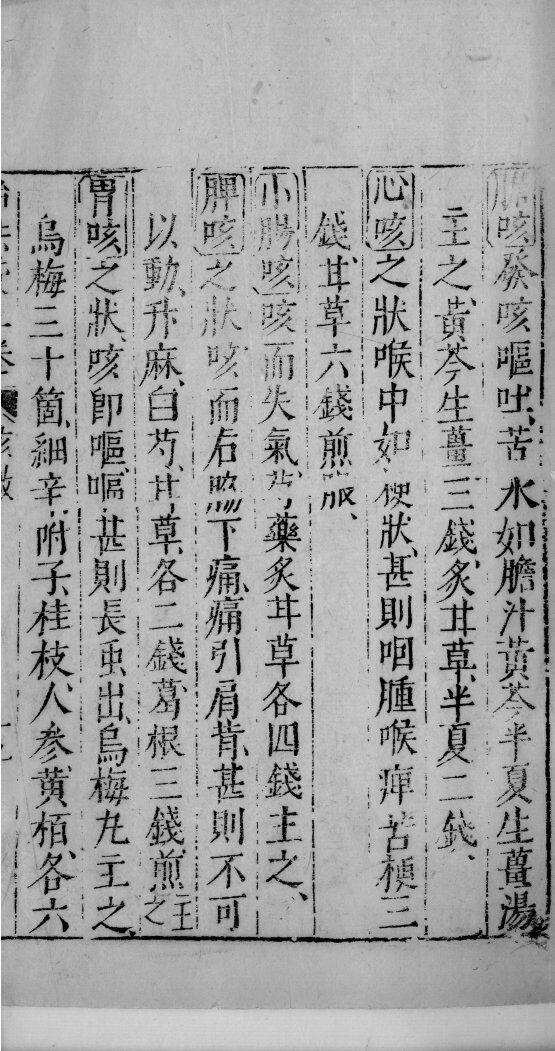 膽咳發咳嘔吐、苦水如膽汁黃芩半夏生薑湯
主之、黃芩生薑三錢、炙甘草、半夏二錢、
心咳之狀喉中如梗狀、甚則咽腫喉痺苦梗三
錢、甘草六錢煎服、
小腸咳咳而失氣、芍藥炙甘草各四錢主之、
脾咳之狀咳而右脇下痛、痛引肩背、甚則不可
以動、升麻、白芍、甘草、各二錢、葛根三錢、煎主之
胃咳之狀、咳即嘔、嘔甚則長虫出、烏梅丸主之、
烏梅三十箇、細辛、附子、桂枝、人參、黃栢、各六